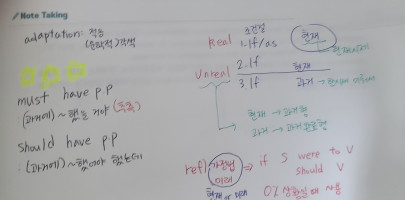 Note Taking
adaptation: 적응
(문학적) 각색
must have p.p
(과거에) ~했을 거야 (추측)
should have p.p
(과거에) ~했어야 했는데
Real
조건절
1. If/as
현재
Unreal
2. If
현재
3. If
과거
현재 → 과거형
과거 → 과거완료형
ref) 가정법
미래
→ if S were to V
should V
현재 or 미래
0%
사용